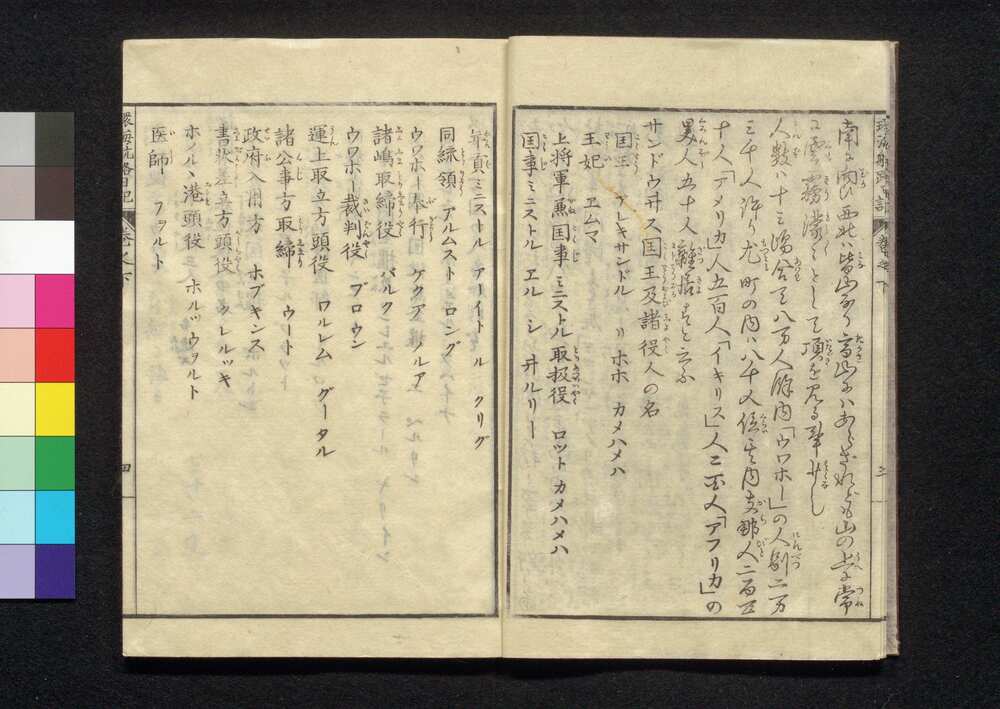 南に向ひ西北ハ皆山なり高山にハあらざれども山の上常
に雲霧濛々として頂を見る事なし
人数ハ十三嶋合て八万人餘内「ウワホー」の人別二万
三千人許り尤町の内ハ八千人係其内支那人二百五
十人「アメリカ」人五百人「イキリス」人二百人「アフリカ」の
黒人五十人雑居すと云ふ
サンドウヰス国王及諸役人の名
国王 アレキサンドル リホホ カメハメハ
王妃 ヱムマ
上将軍兼国事ミニストル取扱役 ロット カメハメハ
国事ミニストル ヱル シ井ルリー
年貢ミニストル アーイト ル クリグ
同縁領 アルムストロング
ウワホー奉行 ケクアナルア
諸嶋取締役 パルク
ウワホー裁判役 ブロウン
運上取立方頭役 ワルレム グータル
諸公事方取締 ウート
政府入用方 ホプキンス
書状差立方頭役 クレルッキ
ホノルヽ港頭役 ホルッウヲルト
医師 フヲルト
三
四